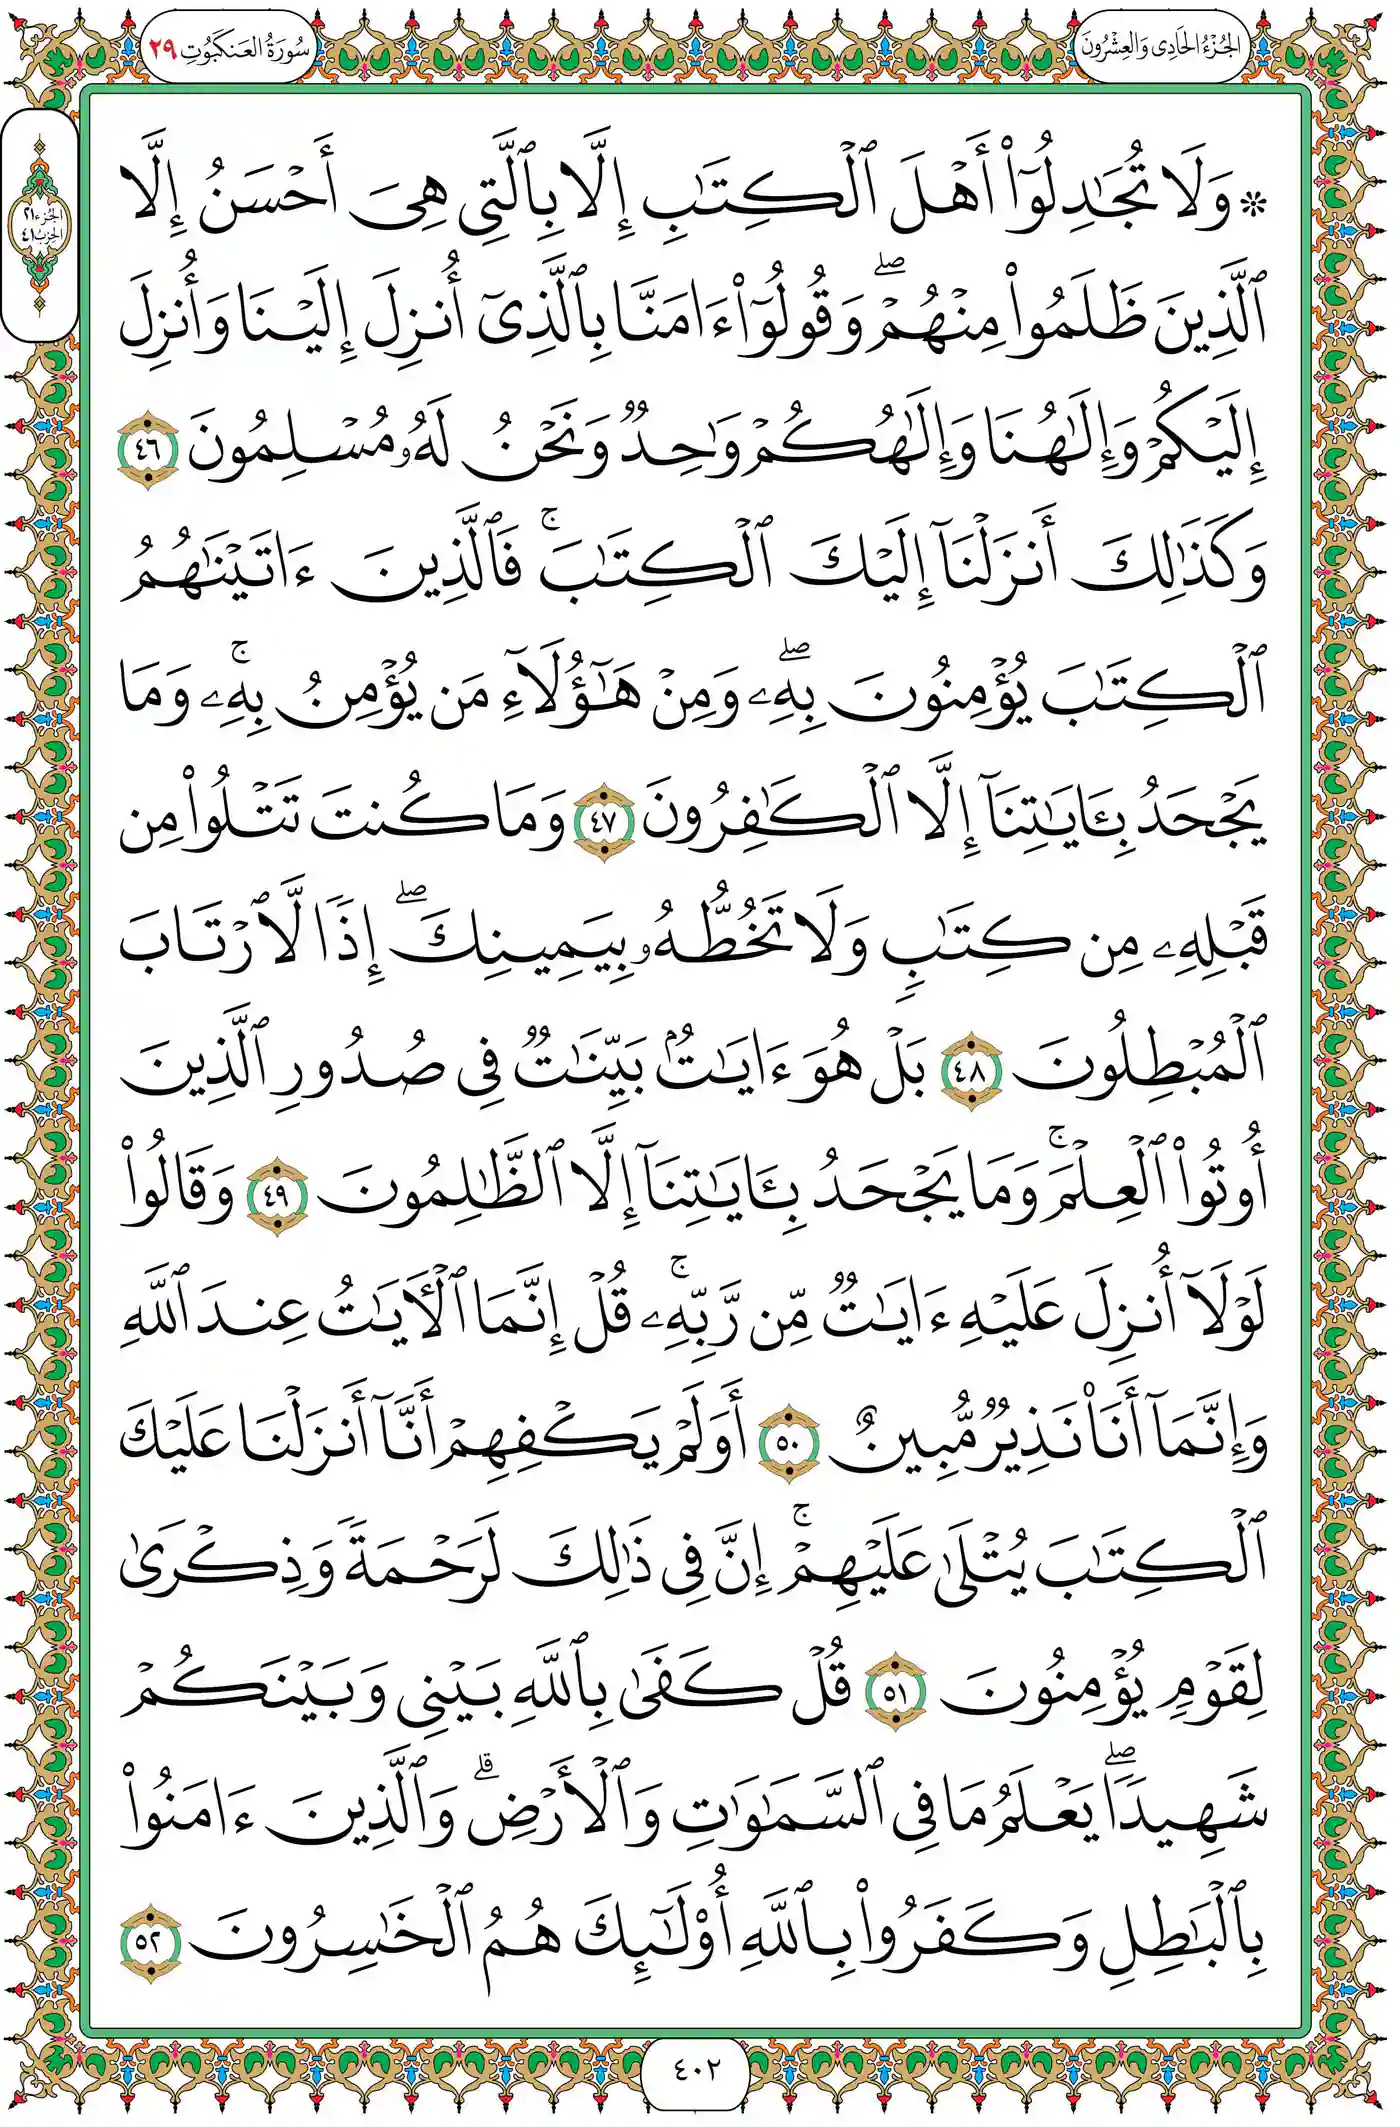 الجُزْءُ الحَادِى وَالعِشْرُونَ
سُورَةُ العَنكَبُوتِ ٢٩
الجزء ٢١
الحزب ٤١
۞ وَلَا تُجَٰدِلُوٓا۟ أَهْلَ ٱلْكِتَٰبِ إِلَّا بِٱلَّتِى هِىَ أَحْسَنُ إِلَّا
ٱلَّذِينَ ظَلَمُوا۟ مِنْهُمْ ۖ وَقُولُوٓا۟ ءَامَنَّا بِٱلَّذِىٓ أُنزِلَ إِلَيْنَا وَأُنزِلَ
إِلَيْكُمْ وَإِلَٰهُنَا وَإِلَٰهُكُمْ وَٰحِدٌ وَنَحْنُ لَهُۥ مُسْلِمُونَ ٤٦
وَكَذَٰلِكَ أَنزَلْنَآ إِلَيْكَ ٱلْكِتَٰبَ ۚ فَٱلَّذِينَ ءَاتَيْنَٰهُمُ
ٱلْكِتَٰبَ يُؤْمِنُونَ بِهِۦ ۖ وَمِنْ هَٰٓؤُلَآءِ مَن يُؤْمِنُ بِهِۦ ۚ وَمَا
يَجْحَدُ بِـَٔايَٰتِنَآ إِلَّا ٱلْكَٰفِرُونَ ٤٧ وَمَا كُنتَ تَتْلُوا۟ مِن
قَبْلِهِۦ مِن كِتَٰبٍ وَلَا تَخُطُّهُۥ بِيَمِينِكَ ۖ إِذًا لَّٱرْتَابَ
ٱلْمُبْطِلُونَ ٤٨ بَلْ هُوَ ءَايَٰتٌۢ بَيِّنَٰتٌ فِى صُدُورِ ٱلَّذِينَ
أُوتُوا۟ ٱلْعِلْمَ ۚ وَمَا يَجْحَدُ بِـَٔايَٰتِنَآ إِلَّا ٱلظَّٰلِمُونَ ٤٩ وَقَالُوا۟
لَوْلَآ أُنزِلَ عَلَيْهِ ءَايَٰتٌ مِّن رَّبِّهِۦ ۚ قُلْ إِنَّمَا ٱلْـَٔايَٰتُ عِندَ ٱللَّهِ
وَإِنَّمَآ أَنَا۠ نَذِيرٌ مُّبِينٌ ٥٠ أَوَلَمْ يَكْفِهِمْ أَنَّآ أَنزَلْنَا عَلَيْكَ
ٱلْكِتَٰبَ يُتْلَىٰ عَلَيْهِمْ ۚ إِنَّ فِى ذَٰلِكَ لَرَحْمَةً وَذِكْرَىٰ
لِقَوْمٍ يُؤْمِنُونَ ٥١ قُلْ كَفَىٰ بِٱللَّهِ بَيْنِى وَبَيْنَكُمْ
شَهِيدًا ۖ يَعْلَمُ مَا فِى ٱلسَّمَٰوَٰتِ وَٱلْأَرْضِ ۗ وَٱلَّذِينَ ءَامَنُوا۟
بِٱلْبَٰطِلِ وَكَفَرُوا۟ بِٱللَّهِ أُو۟لَٰٓئِكَ هُمُ ٱلْخَٰسِرُونَ ٥٢
٤٠٢